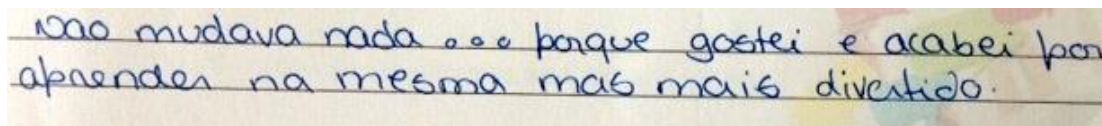 Não mudava nada... porque gostei e acabei por
aprender na mesma mas mais divertido.